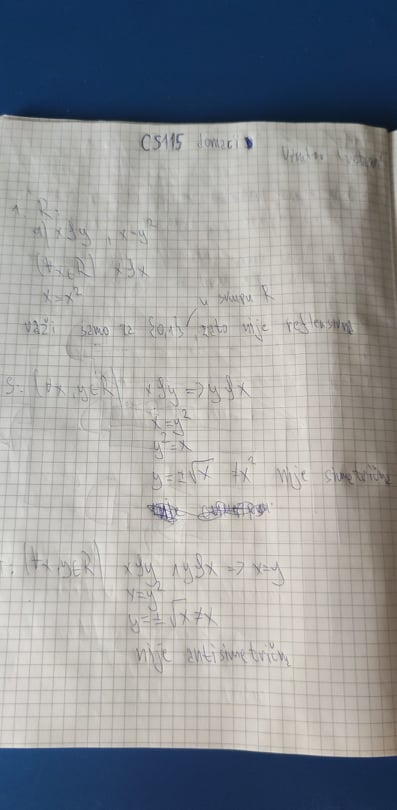 CS115 domaći
1. R:
a) xρy, x=y²
(∀x∈R) xρx
x=x²
u skupu R
važi samo za {0,1}, zato nije refleksivna
S: (∀x,y∈R) xρy => yρx
x=y²
y²=x
y=±√x ≠x² nije simetrična
(∀x,y∈R) xρy ∧ yρx => x=y
x=y²
y=±√x≠x
nije antisimetrična